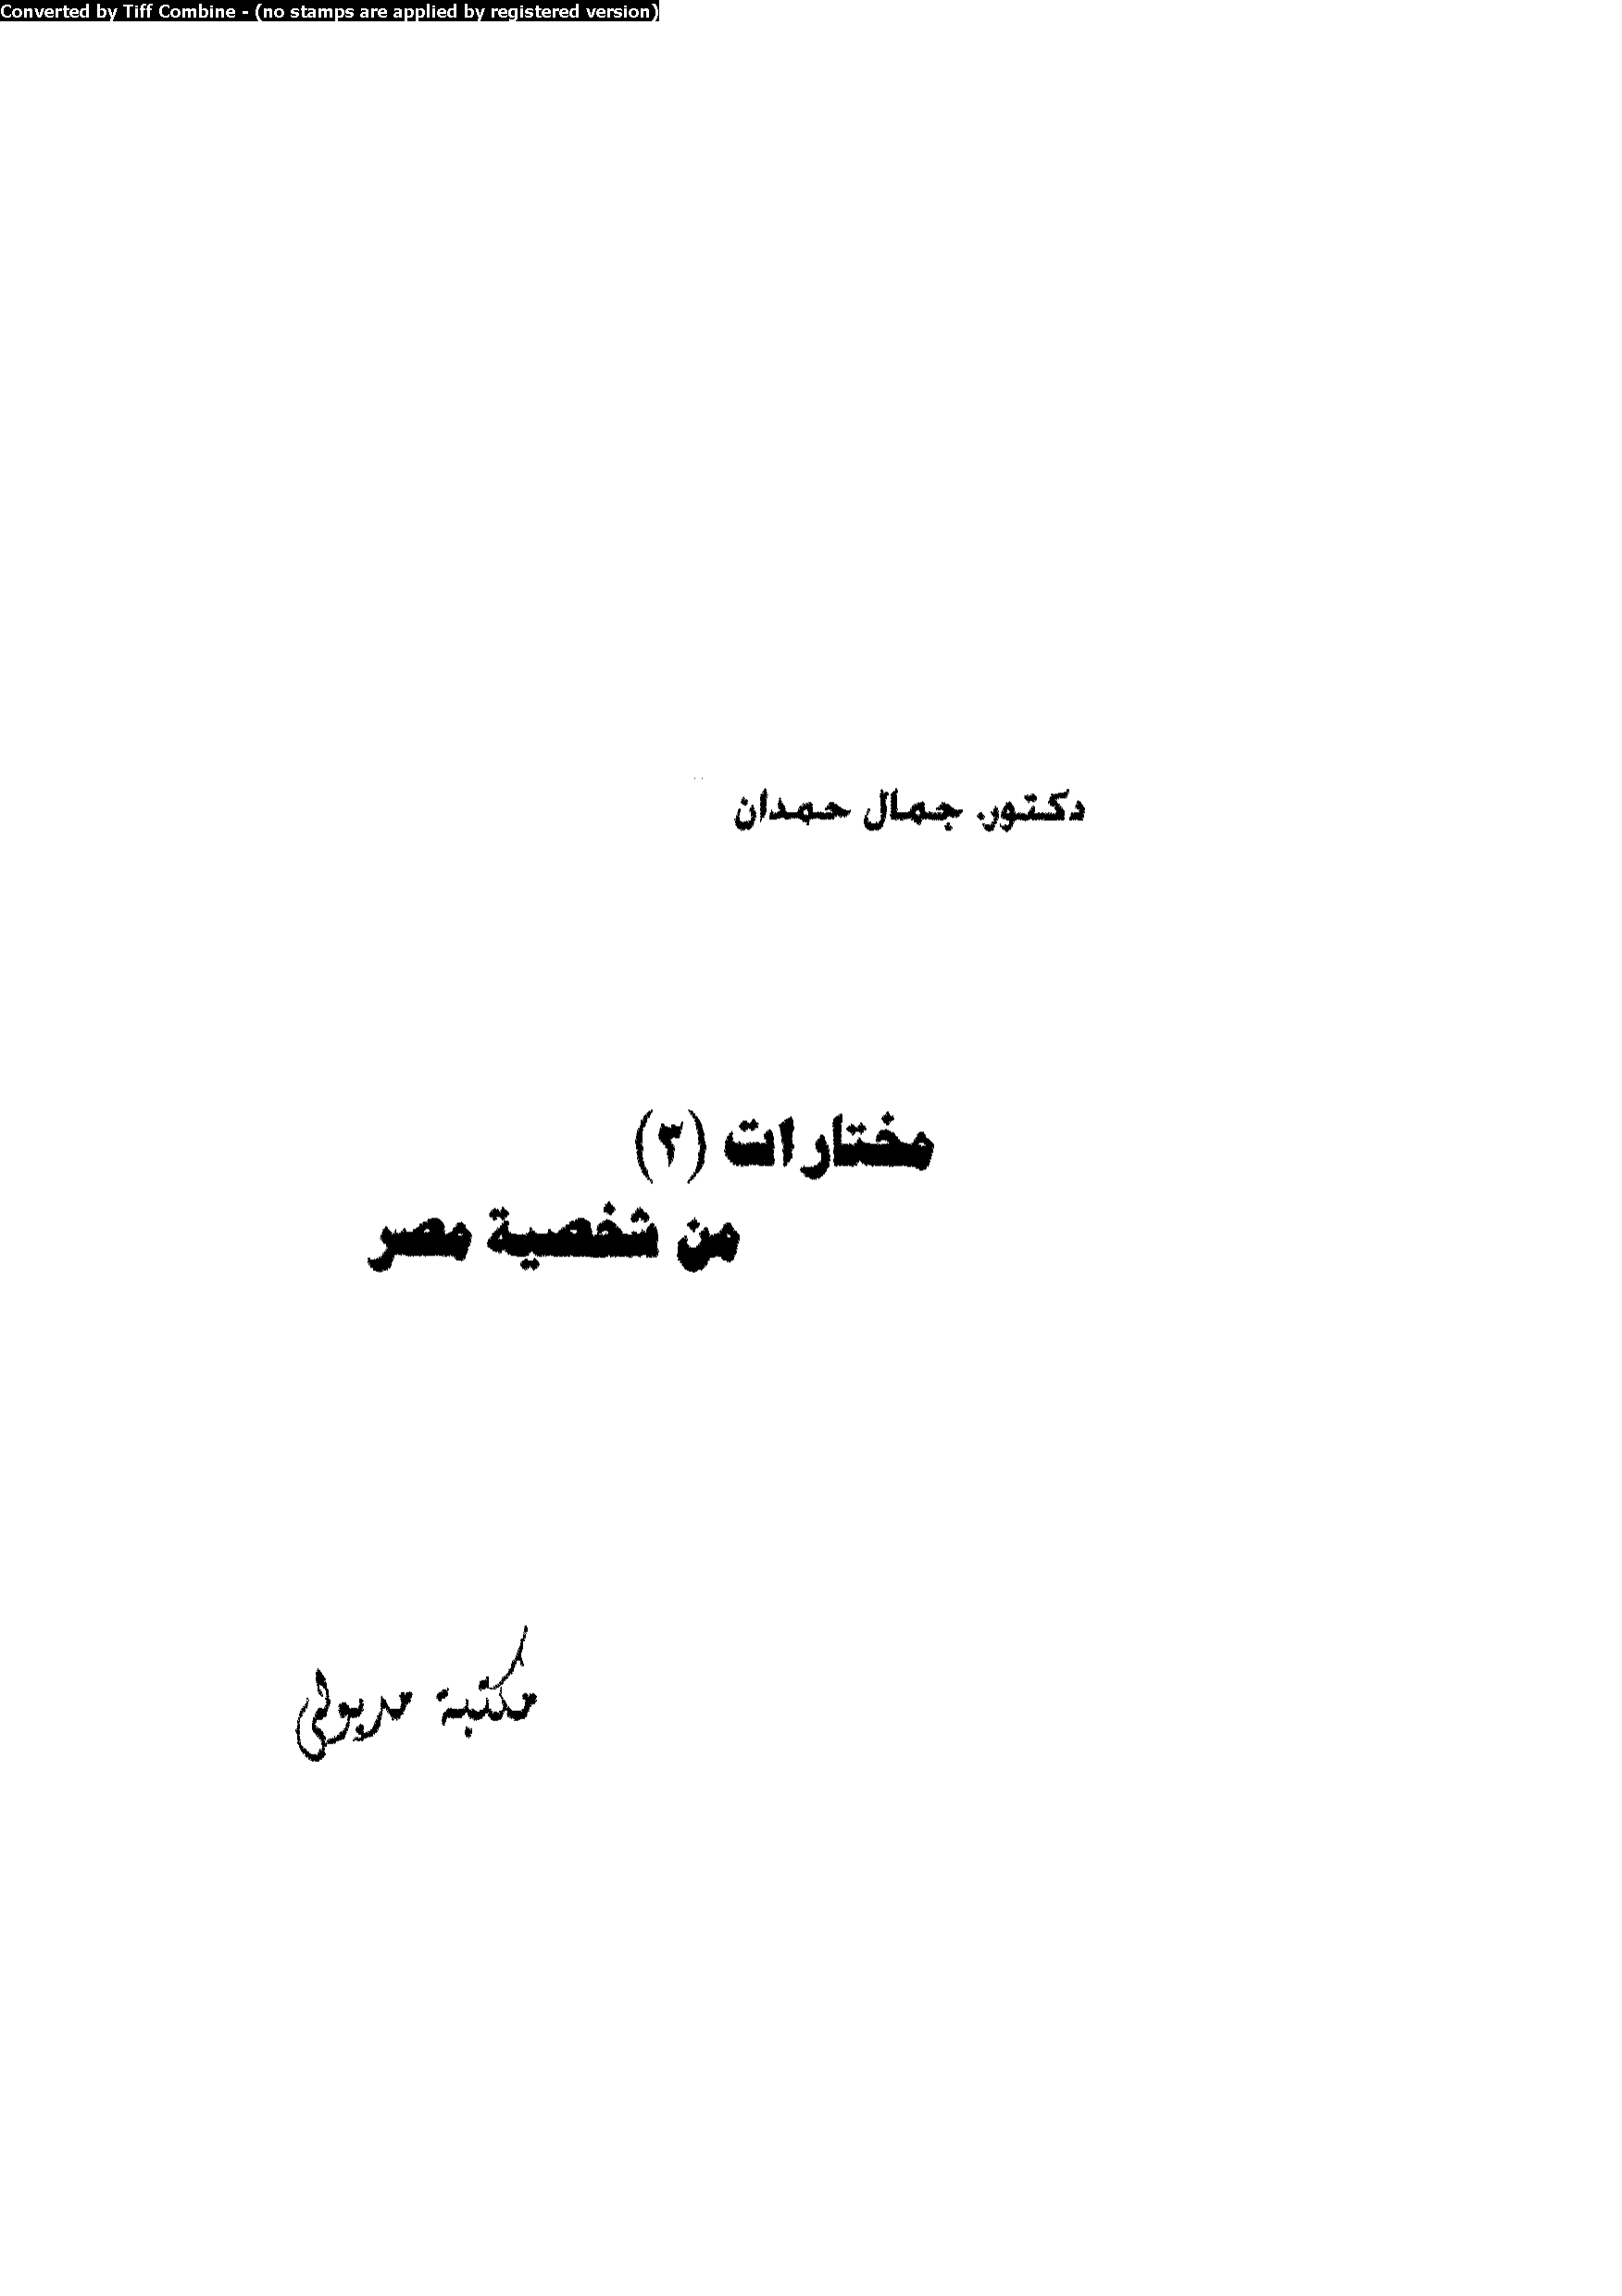 Converted by Tiff Combine - (no stamps are applied by registered version)
دكتور. جمال حمدان
مختارات (٣)
من شخصية مصر
مكتبة مدبولى